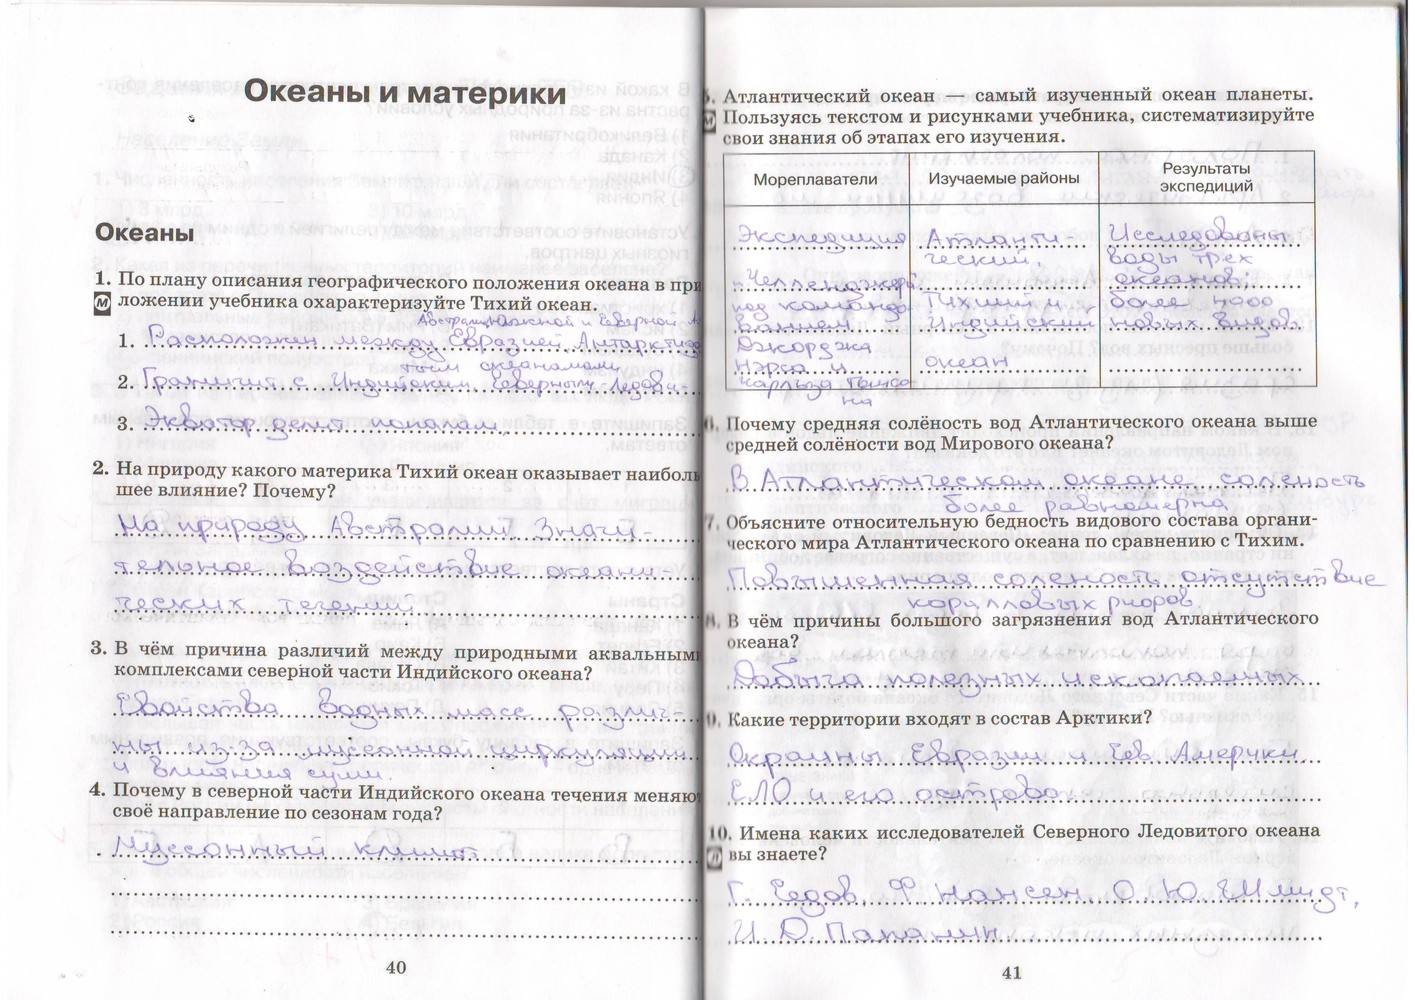 Океаны и материки
Океаны
1. По плану описания географического положения океана в при
М ложении учебника охарактеризуйте Тихий океан.
Австралией, Южной и Северной А
1. Расположен между Евразией, Антарктидой
тым океанами
2. Граничит с Индийским, Северным Ледови-
3. Экватор делит пополам
2. На природу какого материка Тихий океан оказывает наиболь
шее влияние? Почему?
На природу Австралии. Значи-
тельное воздействие океани-
ческих течений
3. В чём причина различий между природными аквальными
комплексами северной части Индийского океана?
Свойства водных масс различ-
ны из-за муссонной циркуляции
и влияния суши.
4. Почему в северной части Индийского океана течения меняют
своё направление по сезонам года?
Муссонный климат
40
5. Атлантический океан — самый изученный океан планеты.
М Пользуясь текстом и рисунками учебника, систематизируйте
свои знания об этапах его изучения.
Мореплаватели Изучаемые районы Результаты
экспедиций
Экспедиция Атланти- Исследованы
ческий, воды трёх
"Челленджер" океанов,
под командо- Тихий и более 4000
ванием Индийский новых видов
Джорджа
Нэрса и океан
Чарльза Томсо
на
6. Почему средняя солёность вод Атлантического океана выше
средней солёности вод Мирового океана?
В Атлантическом океане соленость
более равномерна
7. Объясните относительную бедность видового состава органи-
ческого мира Атлантического океана по сравнению с Тихим.
Повышенная соленость, отсутствие
коралловых рифов
8. В чём причины большого загрязнения вод Атлантического
океана?
Добыча полезных ископаемых
9. Какие территории входят в состав Арктики?
Окраины Евразии и Сев Америки
СЛО и его острова
10. Имена каких исследователей Северного Ледовитого океана
Л вы знаете?
Г. Седов, Ф Нансен, О. Ю. Шмидт,
И. Д. Папанин
41